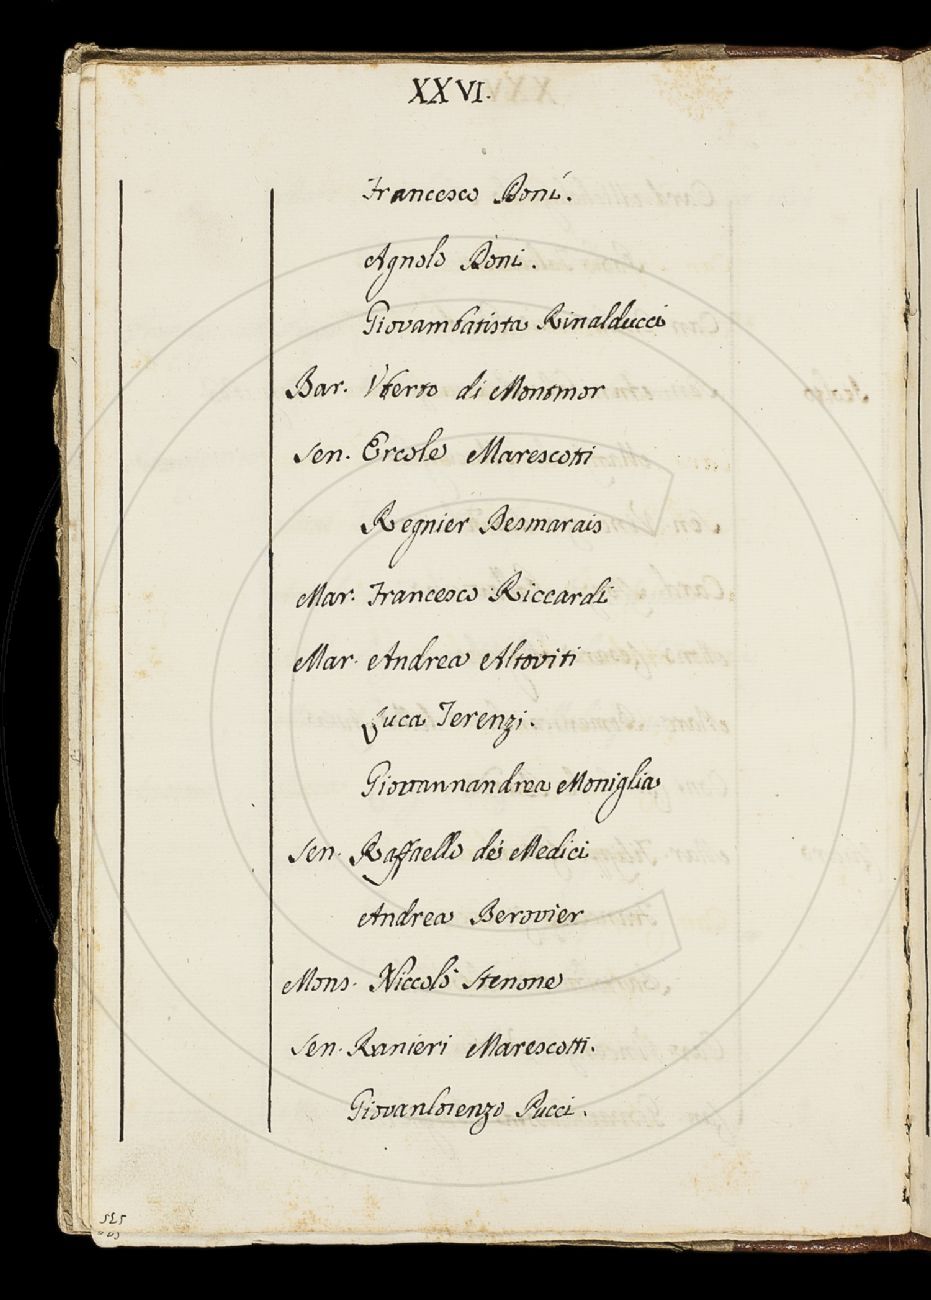 XXVI.
Francesco Boni.
Agnolo Boni.
Giovambatista Rinalducci
Bar. Vberto di Montmor
Sen. Ercole Marescotti
Regnier Desmarais
Mar. Francesco Riccardi
Mar. Andrea Altoviti
Luca Terenzi.
Giovannandrea Moniglia
Sen. Raffaello de' Medici
Andrea Berovier
Mons. Niccolò Stenone
Sen. Ranieri Marescotti.
Giovanlorenzo Pucci.